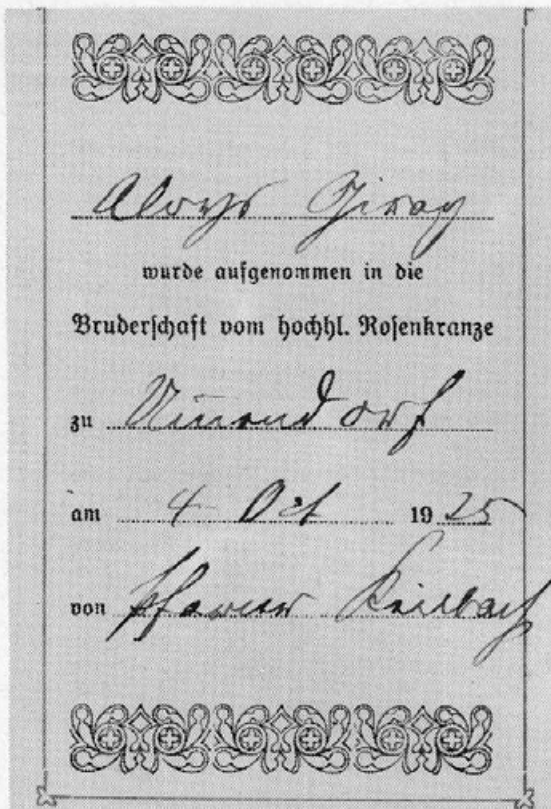 Aloys Giray
wurde aufgenommen in die
Bruderschaft vom hochhl. Rosenkranze
zu
am 4 Oct 1925
von Pfarrer